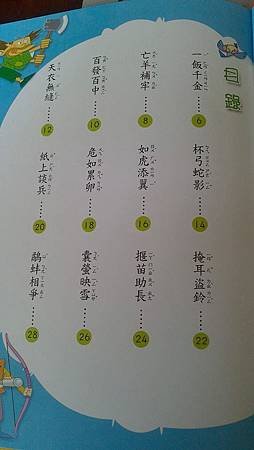 目錄
一飯千金……6
亡羊補牢……8
百發百中……10
天衣無縫……12
杯弓蛇影……14
如虎添翼……16
危如累卵……18
紙上談兵……20
掩耳盜鈴……22
揠苗助長……24
囊螢映雪……26
鷸蚌相爭……28